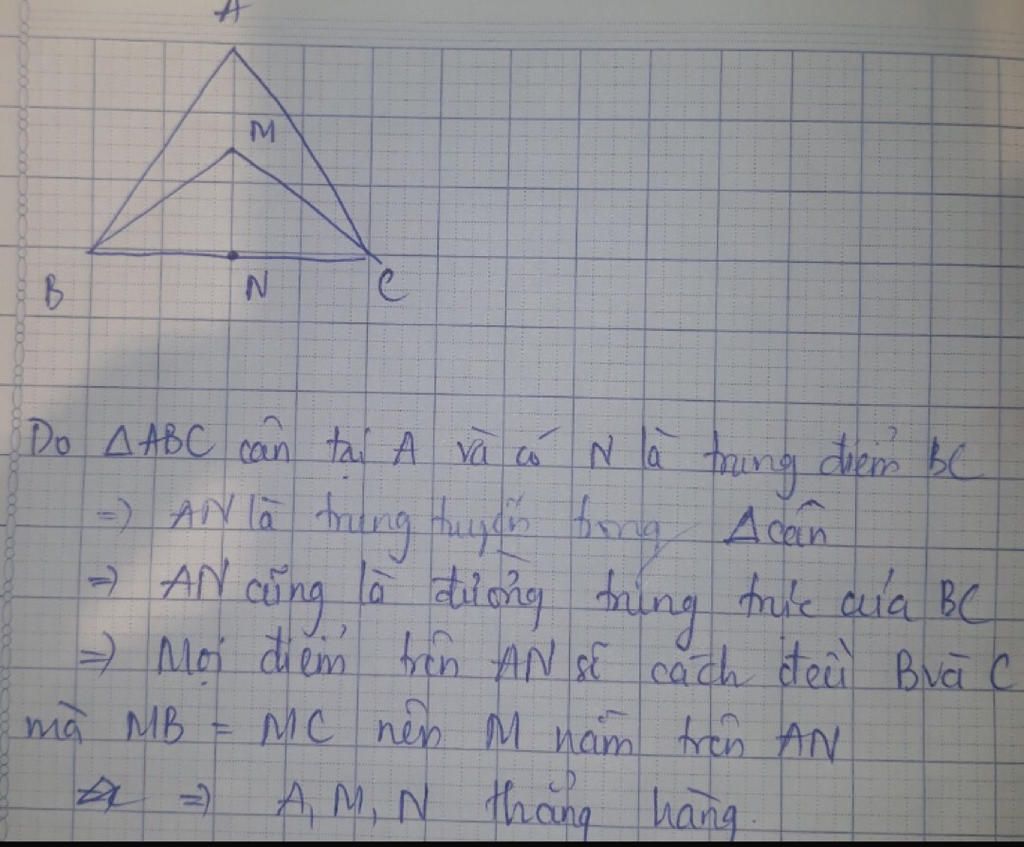 A
M
B
N
C
Do ΔABC cân tại A và có N là trung điểm BC
=) AN là trung tuyến trong Δ cân
=) AN cũng là đường trung trực của BC
=) Mọi điểm trên AN sẽ cách đều B và C
mà MB = MC nên M nằm trên AN
=) A, M, N thẳng hàng.